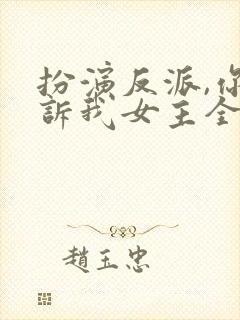 扮演反派,你
訴我女主全
趙玉忠